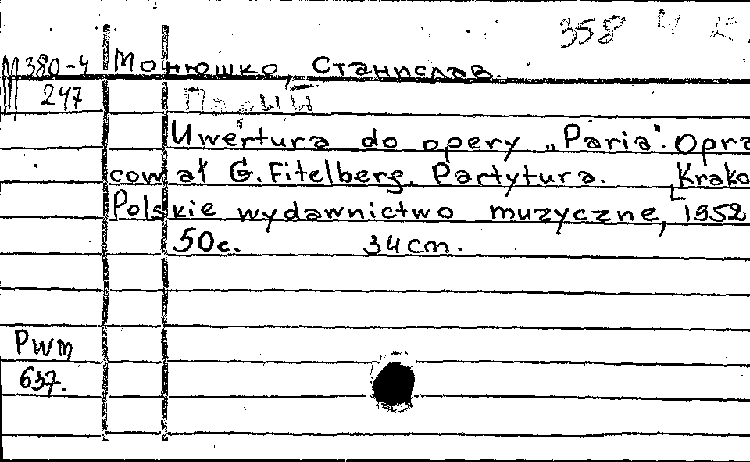 358
М 380-4 Монюшко, Станислав.
247
Uwertura do opery „Paria". Opra
cował G. Fitelberg. Partytura. Krako
Polskie wydawnictwo muzyczne, 1952
50c. 34cm.
Pwm
637.